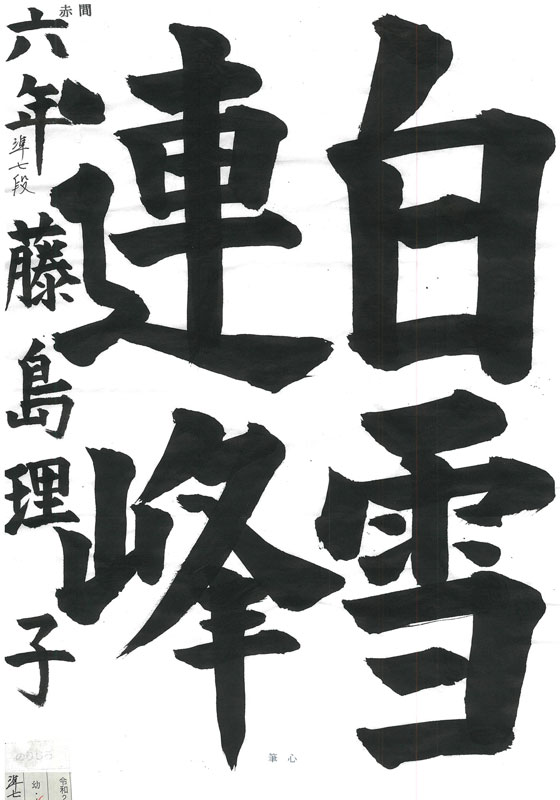 白雪
連峰
赤間
六年
準七段
藤島理子
心筆
令和2
幼
準七